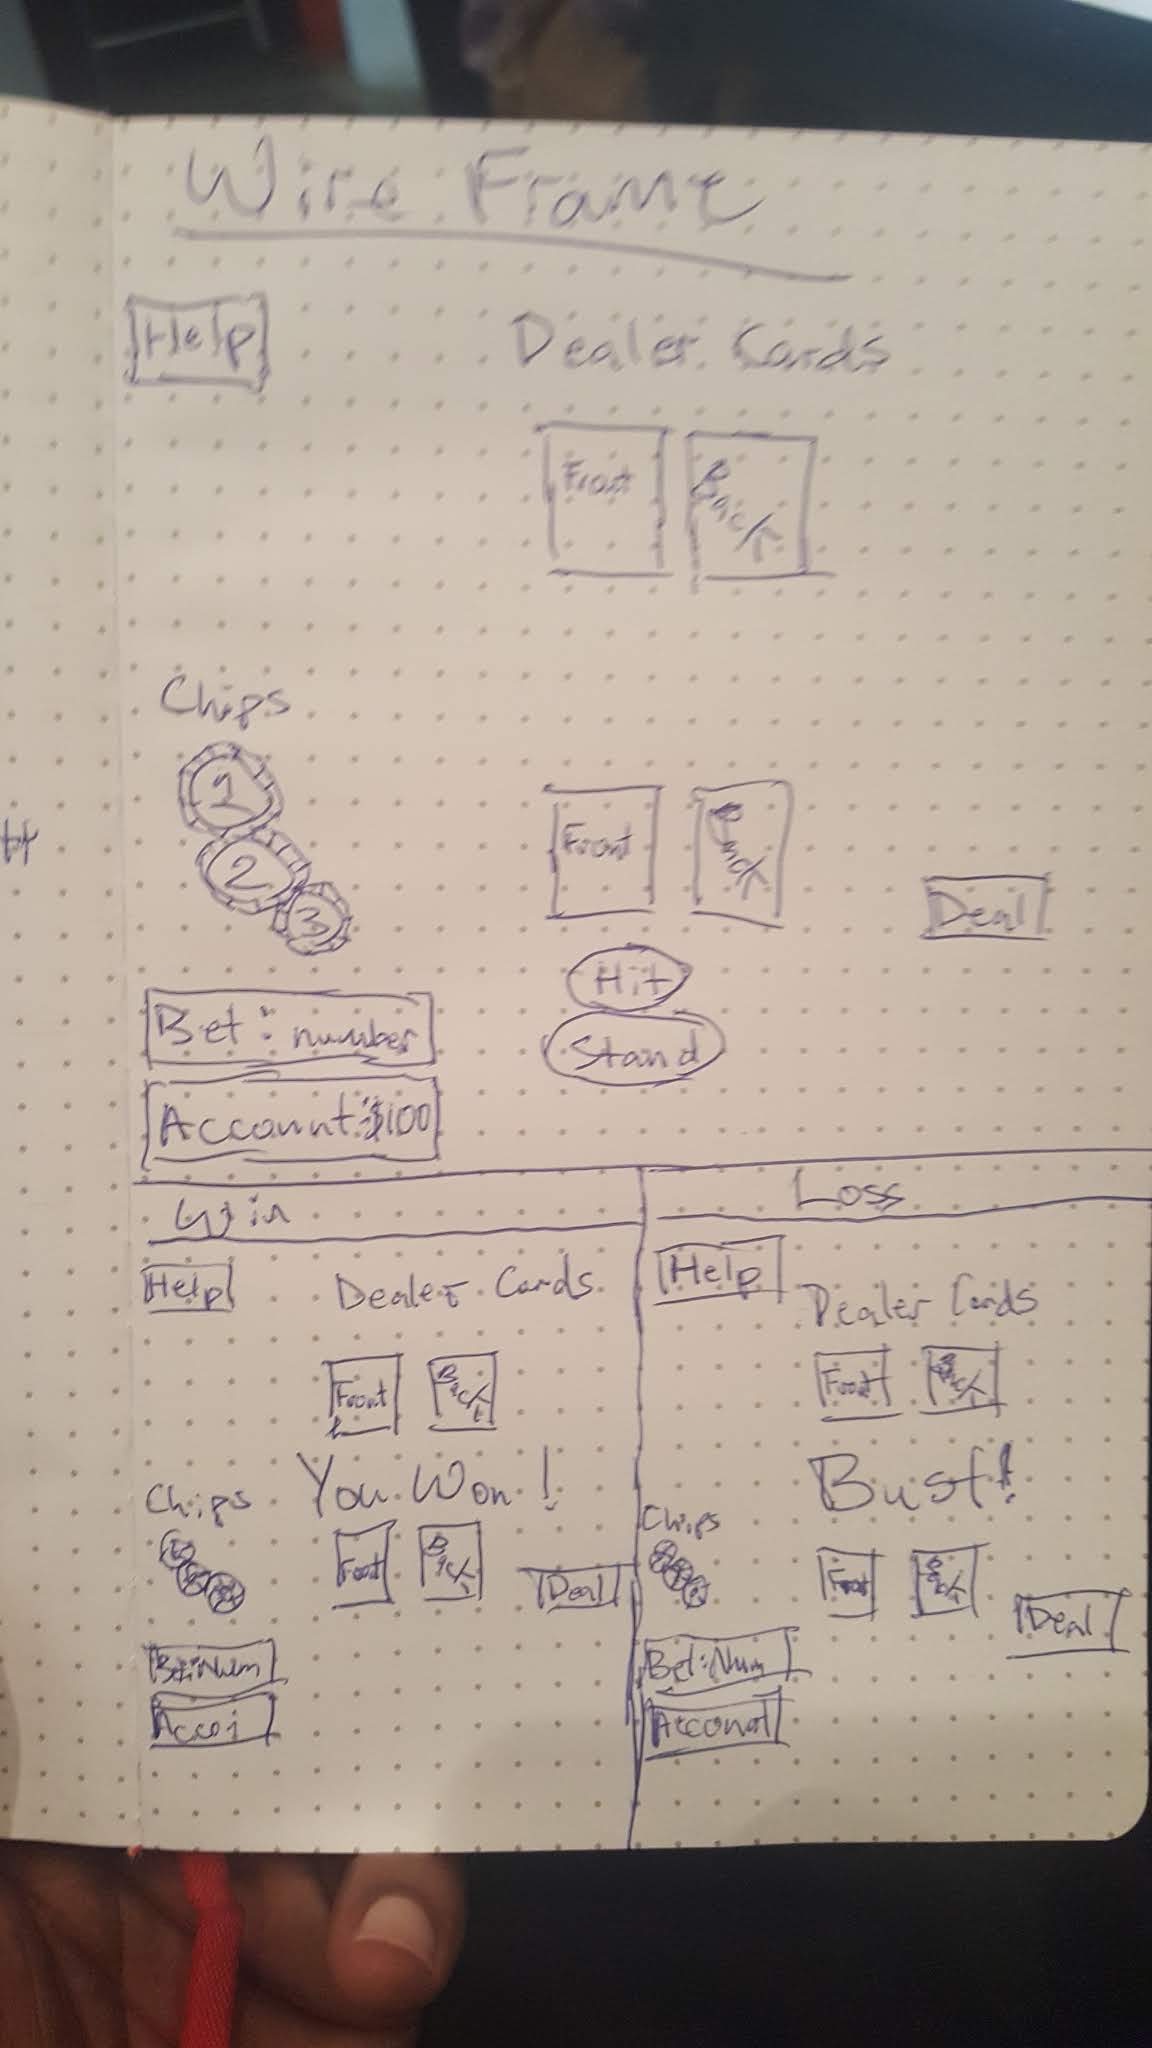 Wire Frame
Help
Dealer Cards
Front Back
Chips
1
2
3
Front Back
Deal
Hit
Stand
Bet: number
Account:$100
Win
Help
Dealer Cards
Front Back
You Won!
Chips
Front Back
Deal
Bet:Num
Loss
Help
Dealer Cards
Front Back
Bust!
Chips
Front Back
Deal
Bet:Num
Account